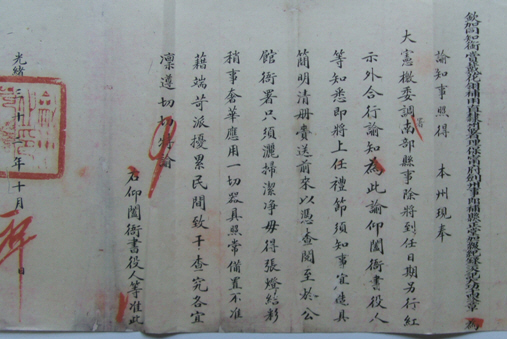 諭知事照得　本州現奉
大憲檄委調署南部縣事除將到任日期另行紅
示外合行諭知為此諭仰闔衙書役人
等知悉即將上任禮節須知事宜造具
簡明清冊賫送前來以憑查閱至於公
館衙署只須灑掃潔淨毋得張燈結彩
稍事奢華應用一切器具照常備置不准
藉端苛派擾累民間致干查究各宜
凜遵切切特諭
右仰闔衙書役人等准此
光緒三十 年十月 日